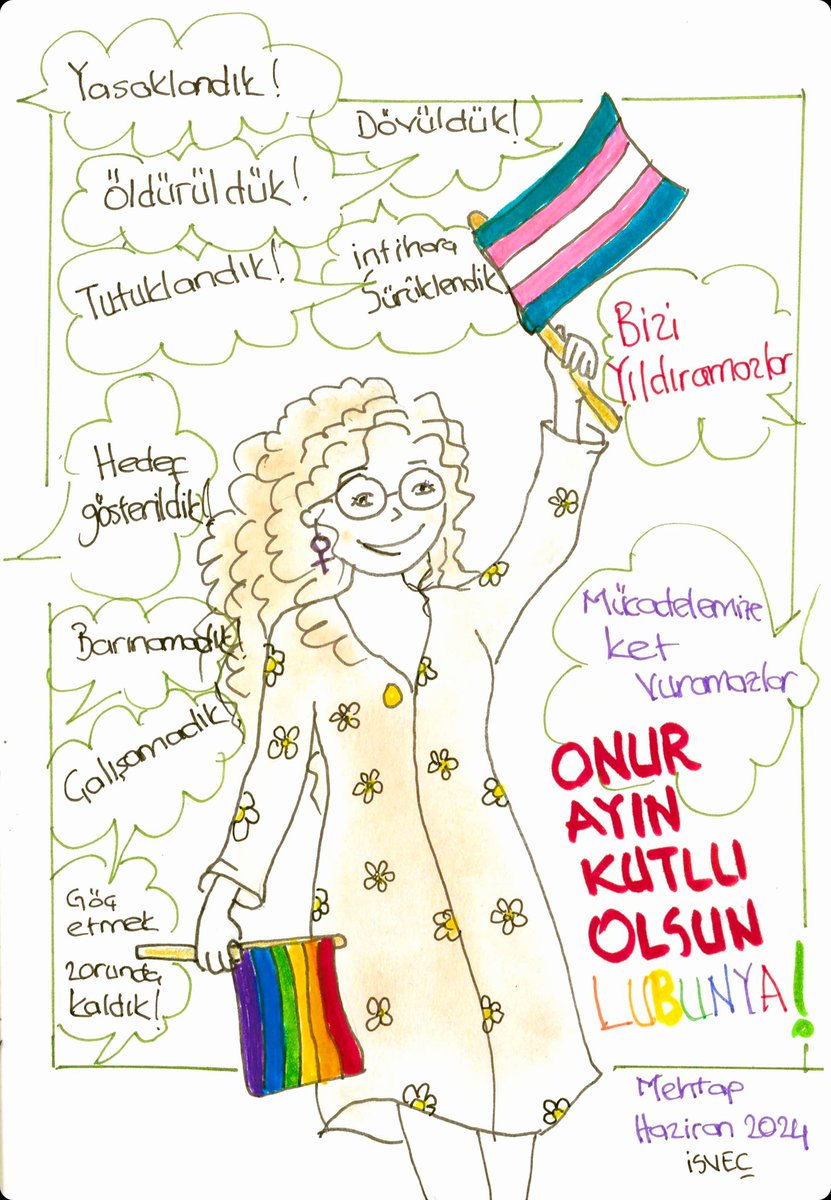 Yasaklandık!
Dövüldük!
Öldürüldük!
Tutuklandık!
intihara
Sürüklendik
Bizi
Yıldıramazlar
Hedef
gösterildik!
Barınamadık!
Çalışamadık!
Göç
etmek
zorunda
kaldık!
Mücadelemize
ket
vuramazlar
ONUR
AYIN
KUTLU
OLSUN
LUBUNYA!
Mehtap
Haziran 2024
iSVEÇ